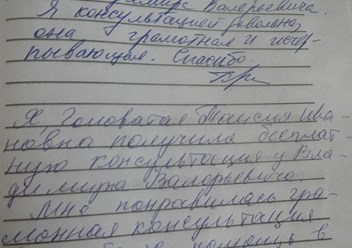 димира Валерьевича.
Я консультацией довольна,
она грамотная и исчер-
пывающая. Спасибо.
Я Головатая Таисия Ива-
новна получила бесплат-
ную консультация у Вла-
димира Валерьевича
Мне понравилась гра-
монная консультация
помощь в